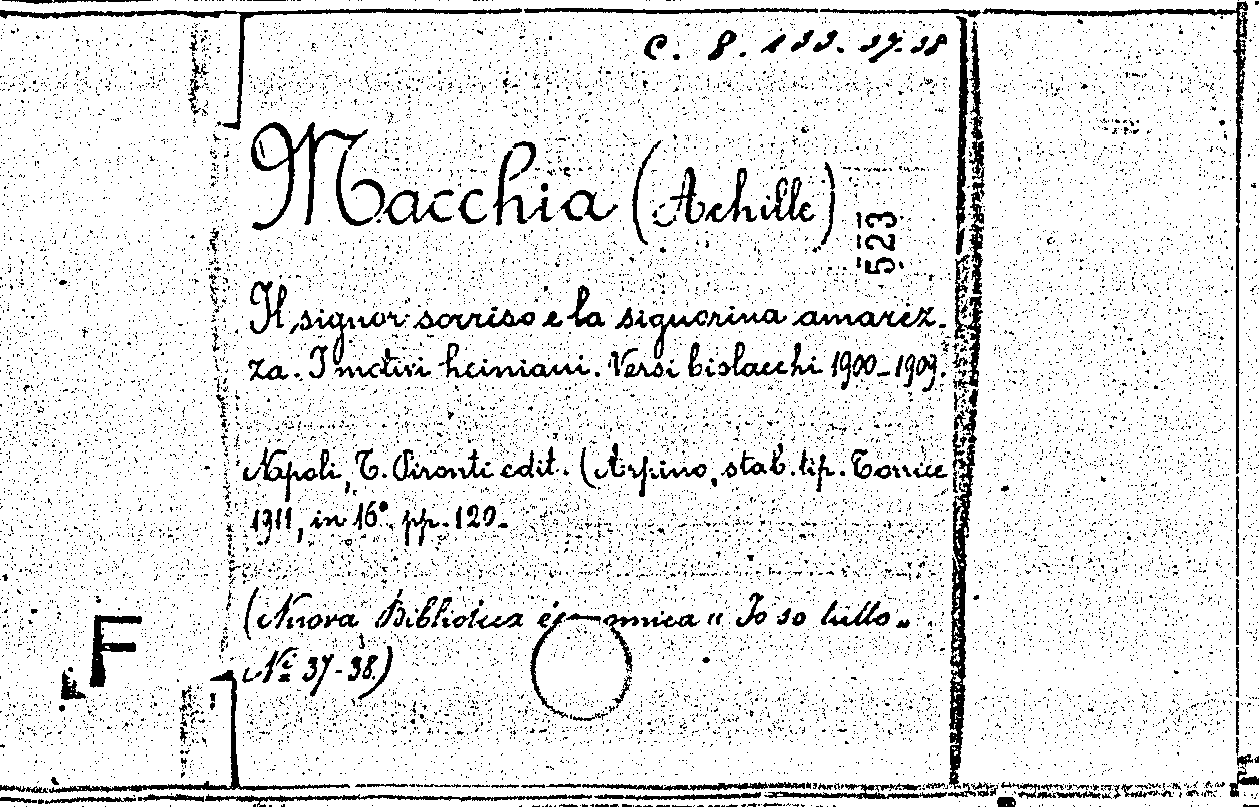 C. 8. 133. 37-38
Macchia (Achille)
523
Il signor sorriso e la signorina amarez-
za. I motivi heiniani. Versi bislacchi 1900-1909.
Napoli, T. Pironti edit. (Arpino, stab. tip. Torrice
1911, in 16° pp. 120.
(Nuova Biblioteca "Io so tutto"
Ni 37-38)
F